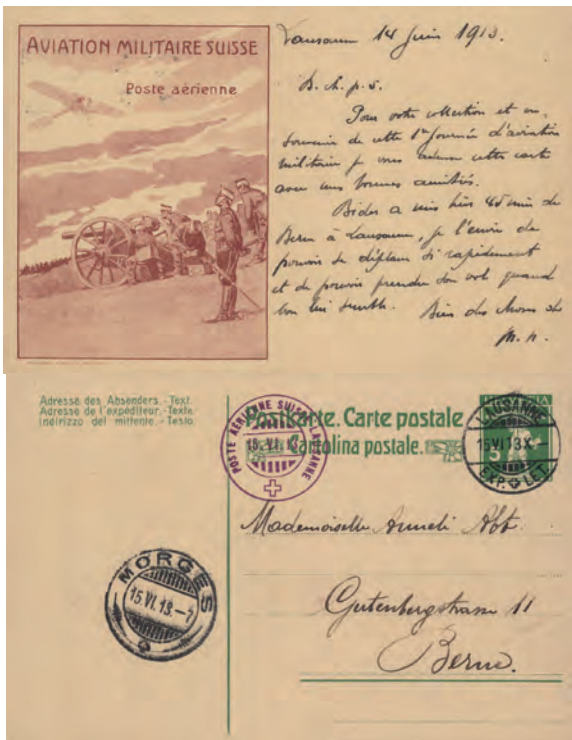 AVIATION MILITAIRE SUISSE
Poste aérienne
Lausanne 14 Juin 1913.
B. ch. p. s.
Pour votre collection et en
souvenir de cette 1re Journée d'aviation
militaire je vous adresse cette carte
avec mes bonnes amitiés.
Bider a mis hier 45 min de
Berne à Lausanne, je l'envie de
pouvoir se déplacer si rapidement
et de pouvoir prendre son vol quand
bon lui semble. Bien des choses de
M. n.
Adresse des Absenders.-Text.
Adresse de l'expéditeur.-Texte.
Indirizzo del mittente.-Testo.
Postkarte. Carte postale
Cartolina postale.
POSTE AÉRIENNE SUISSE LAUSANNE
15.VI.13
HELVETIA
5
LAUSANNE
15.VI.13.X
EXP. LET.
Mademoiselle Anneli Abt.
MORGES
15.VI.13.-7
Gutenbergstrasse 11
Berne.